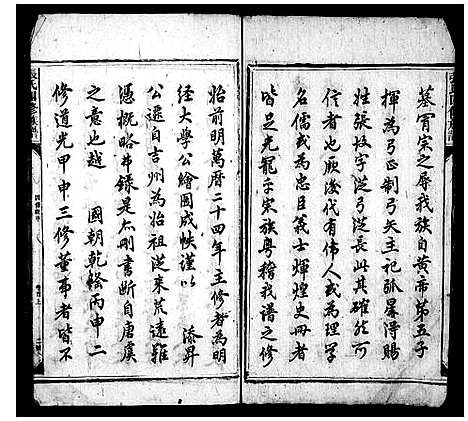 墓胄宗之辱我族自黄帝第五子
揮為弓正制弓矢主祀弧星得賜
姓張故字从弓从長此其確然可
信者也厥後代有偉人或為理學
名儒或為忠臣義士輝煌史冊者
皆足光寵乎宗族粤稽我譜之修
始前明萬曆二十四年主修者為明
經大學公繪圖成帙謹以 添昇
公遷自吉州為始祖從来荒遠難
憑概略弗錄是亦刪書斷自唐虞
之意也越 國朝乾隆丙申二
修道光甲申三修董事者皆不
四修敘序
卷首上